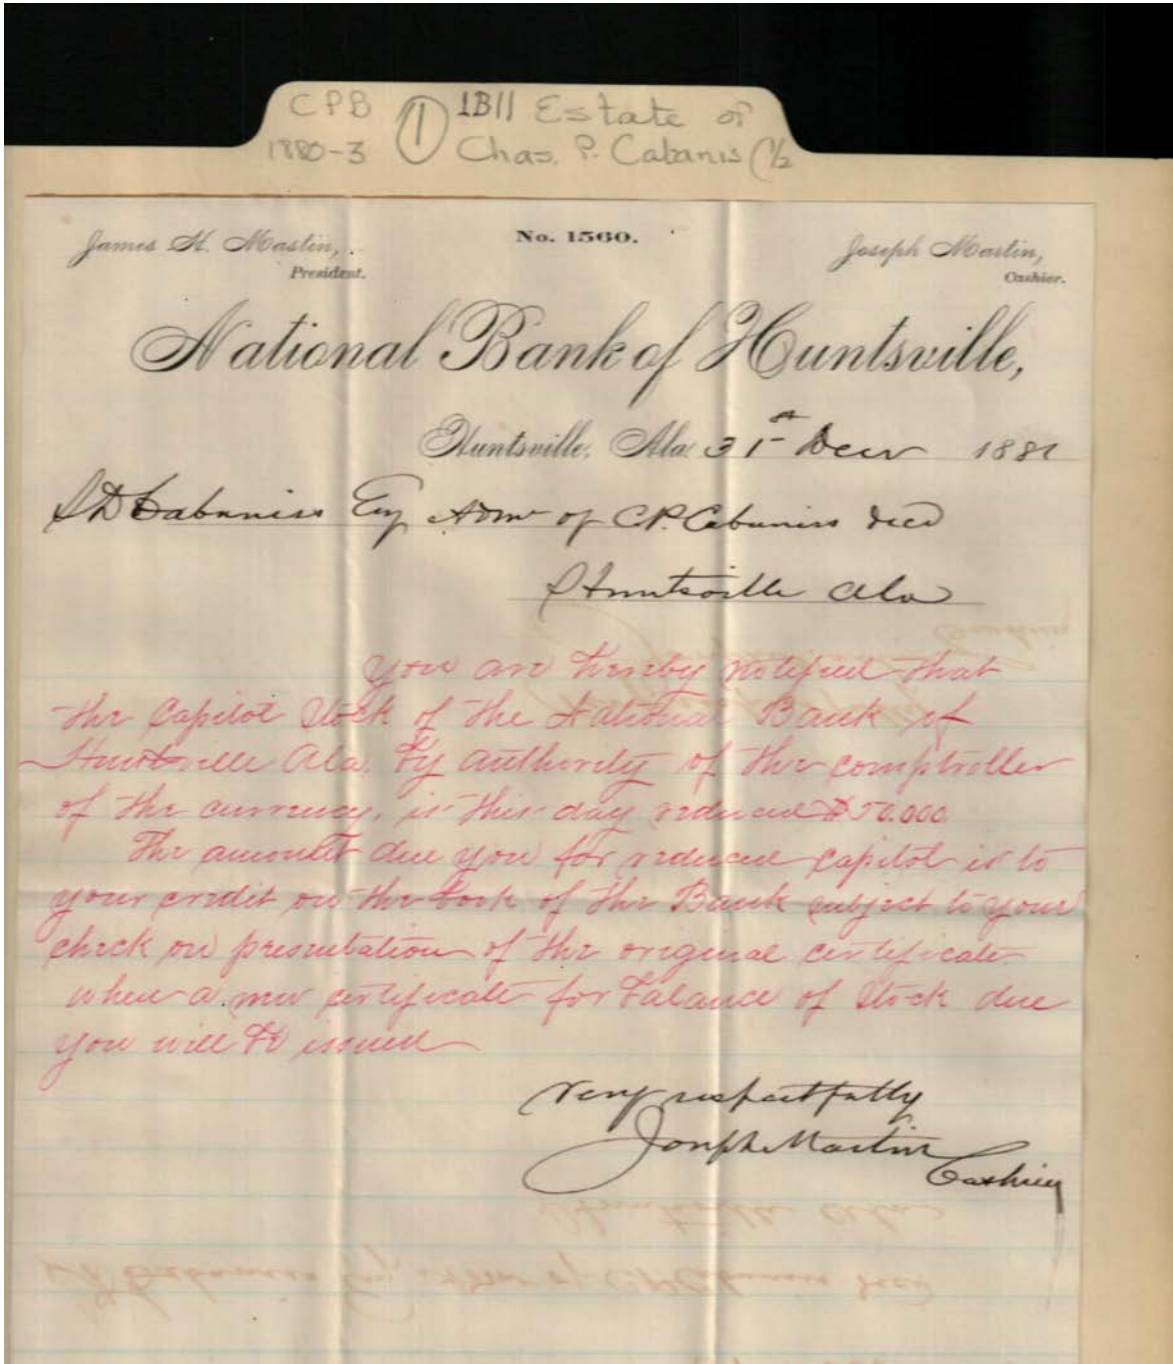 CPB ① 1B11 Estate of
1880-3 Chas. P. Cabanis (1/2
James H. Mastin,
President.
No. 1560.
Joseph Martin,
Cashier.
National Bank of Huntsville,
Huntsville, Ala 31st Decr 1881
S D Cabaniss Esq Admr of C.P. Cabaniss decd
Huntsville Ala
You are hereby notified that
the Capitol Stock of the National Bank of
Huntsville Ala. by authority of the comptroller
of the currency, is this day reduced $50.000
The amount due you for reduced capitol is to
your credit on the book of the Bank subject to your
check on presentation of the original certificate
when a new certificate for balance of Stock due
you will be issued
Very respectfully
Joseph Martin
Cashier